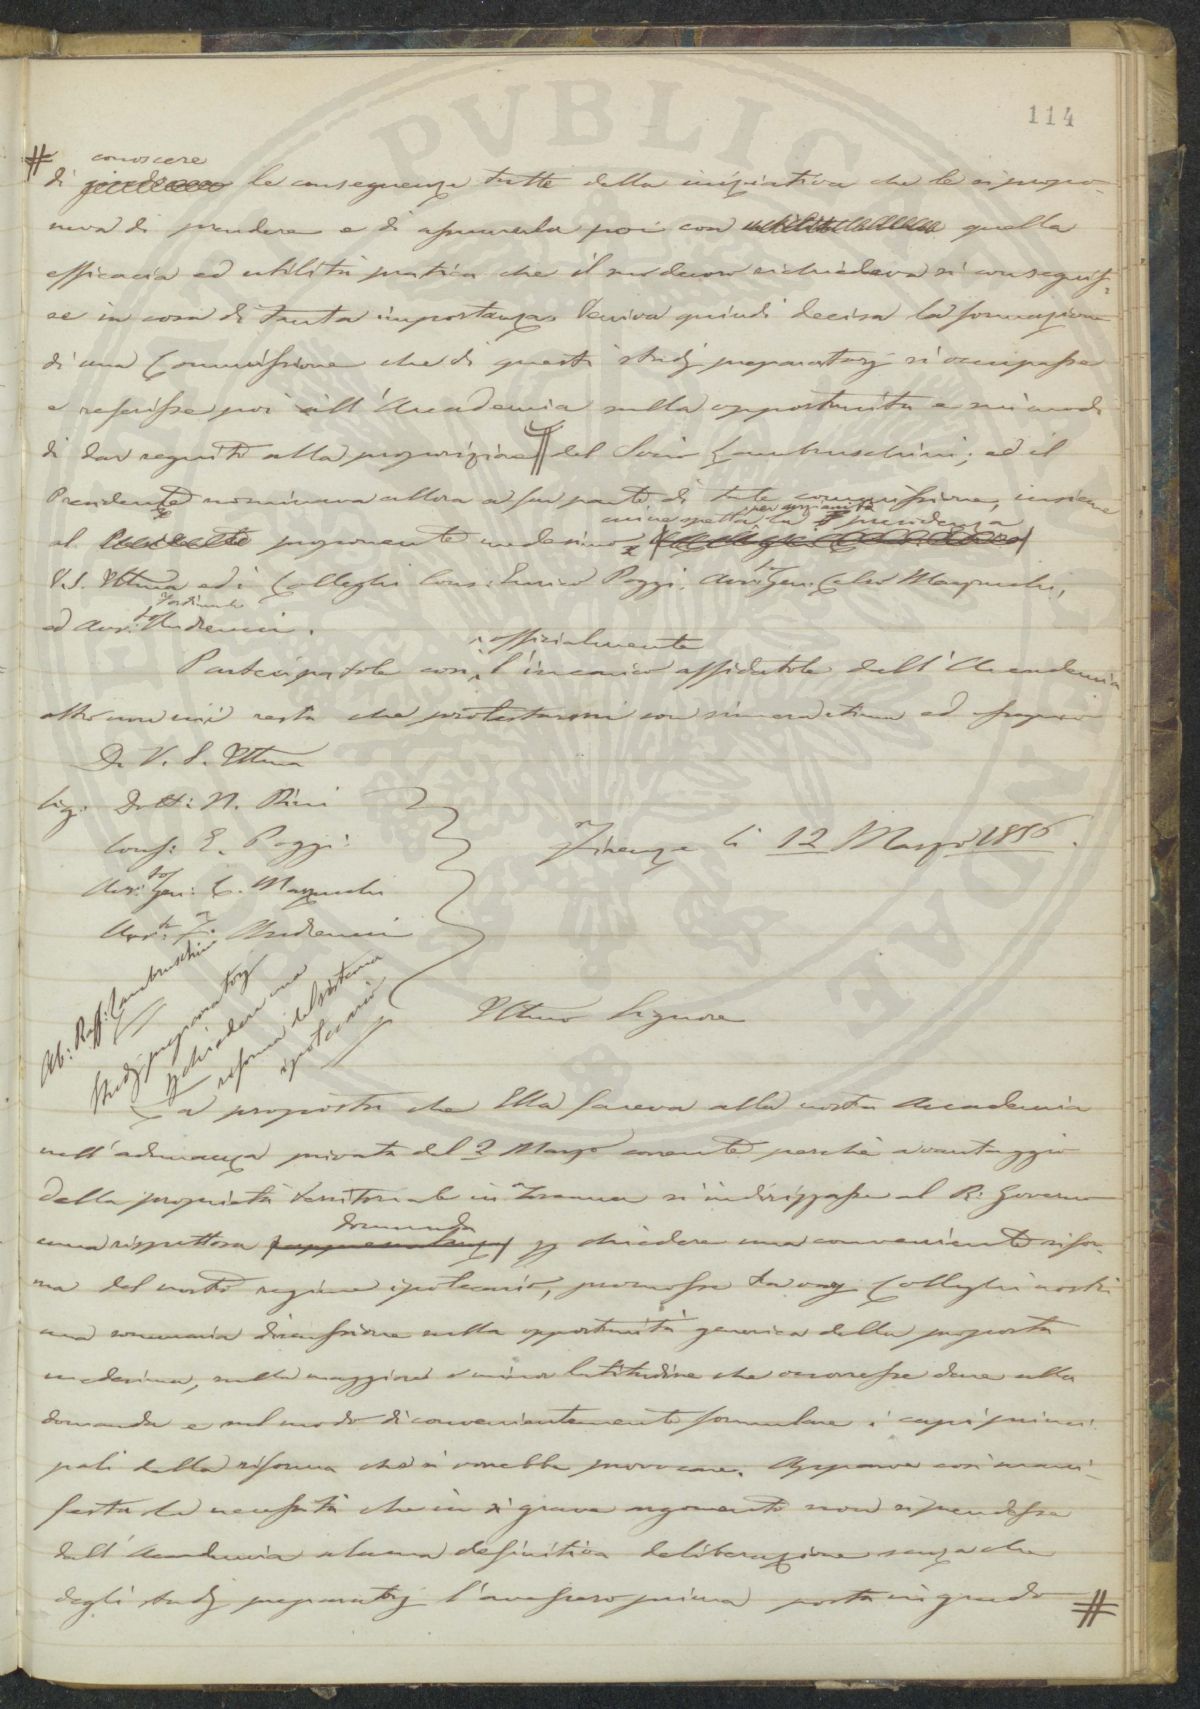 114
# conoscere
di giudicare le conseguenze tutte della iniziativa che le si propo-
neva di prendere e di assumerla poi con quella
efficacia ed utilità pratica che il suo decoro richiedeva si conseguis-
se in cosa di tanta importanza. Veniva quindi decisa la formazione
di una Commissione che di questi studj preparatorj si occupasse
e referisse poi all'Accademia sulla opportunità e sui modi
di dar seguito alla proposizione del Socio Lambruschini; ed il
Presidente nominava allora a far parte di tale commissione, insieme
cui ne spetta per anzianità la presidenza
al proponente medesimo
V.S. Illma ed i Colleghi Cons: Enrico Poggi, Avv.to Gen: Celso Marzucchi,
ed Avv.to Ferdinando Andreucci.
officialmente
Partecipatole così l'incarico affidatole dall'Accademia
altro non mi resta che protestarmi con sincera stima ed ossequio
Di V. S. Illma
Sig. Dott: N. Rini
Cons: E. Poggi
Avv.to Gen: C. Marzucchi
Avv.to F. Andreucci
Firenze li 12 Marzo 1856.
Ab: Raff: Lambruschini
Studj preparatorj
p chiedere una
riforma del sistema
ipotecario
Illmo Signore
La proposta che Ella faceva alla nostra Accademia
nell'adunanza privata del 2 Marzo corrente perchè a vantaggio
della proprietà territoriale in Toscana si indirizzasse al R: Governo
domanda
una rispettosa rappresentanza p chiedere una conveniente rifor-
ma del nostro regime ipotecario, promosse tra varj Colleghi nostri
una sommaria discussione sulla opportunità generica della proposta
medesima, sulla maggiore o minor latitudine che occorresse dare alla
domanda e sul modo di convenientemente formulare i capi princi-
pali della riforma che si vorrebbe provocare. Apparve così mani-
festa la necessità che in sì grave argomento non si prendesse
dall'Accademia alcuna definitiva deliberazione senza che
degli studj preparatorj l'avessero prima posta in grado #